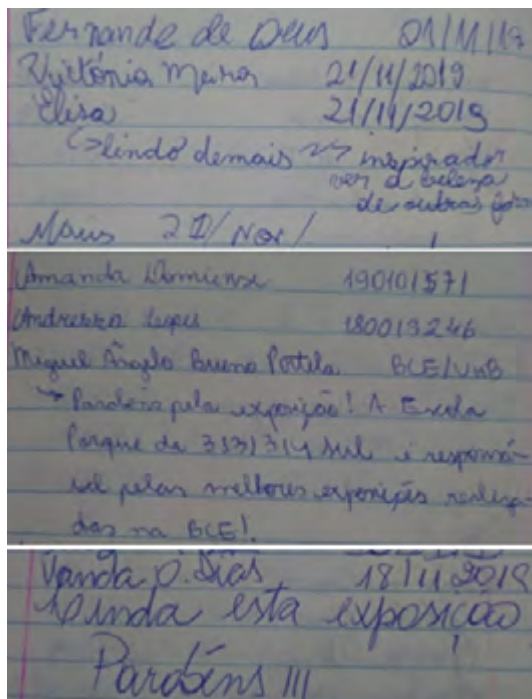 Fernande de Deus 01/11/19
Victónia Meira 21/11/2019
Elisa 21/11/2019
↳ lindo demais ~> inspirador
ver a beleza
de outras
21/Nov/
Amanda 190101571
Andressa Lopes 180019246
Miguel Ângelo Bueno Portela BCE/UnB
→ Parabéns pela exposição! A Escola
Parque da 313/314 Sul é responsá-
vel pelas melhores exposições realiza-
das na BCE!
Vanda O. Dias 18/11/2019
Linda esta exposição
Parabéns !!!